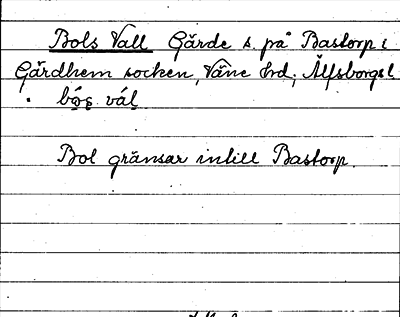 Bols Vall Gärde s. på Bastorp i
Gärdhem socken, Väne hd, Älfsborgs l.
Bol gränsar intill Bastorp.